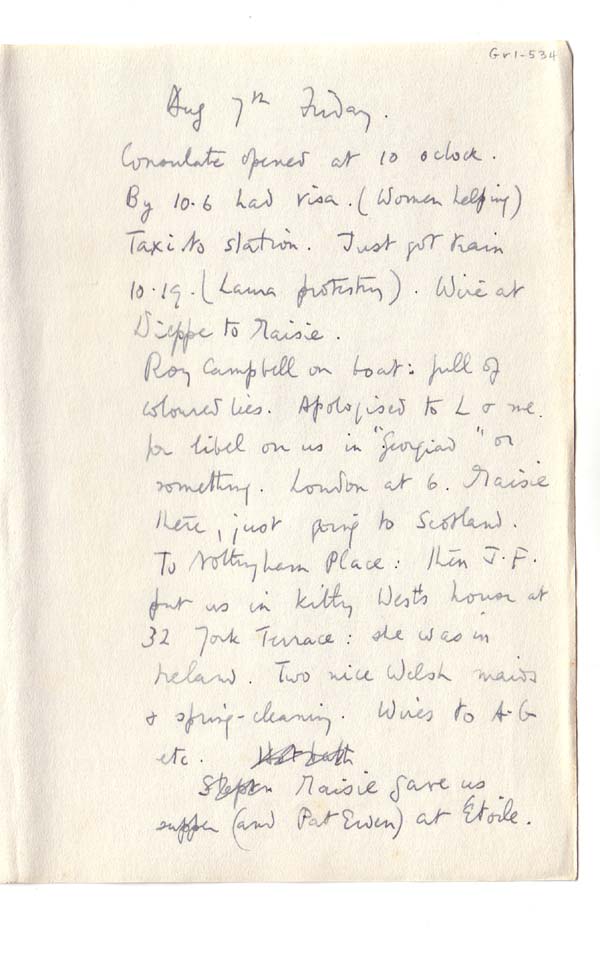 Gr1-534
Aug 7th Friday.
Consulate opened at 10 oclock.
By 10.6 had visa. (Women helping)
Taxi to station. Just got train
10.19. (Laura protesting). Wire at
Dieppe to Maisie.
Roy Campbell on boat: full of
coloured lies. Apologised to L & me.
for libel on us in "Georgiad" or
something. London at 6. Maisie
there, just going to Scotland.
To Nottingham Place: then J.F.
put us in Kitty West's house at
32 York Terrace: she was in
Ireland. Two nice Welsh maids
& spring-cleaning. Wires to A-G
etc.
Maisie gave us
supper (and Pat Ewen) at Etoile.